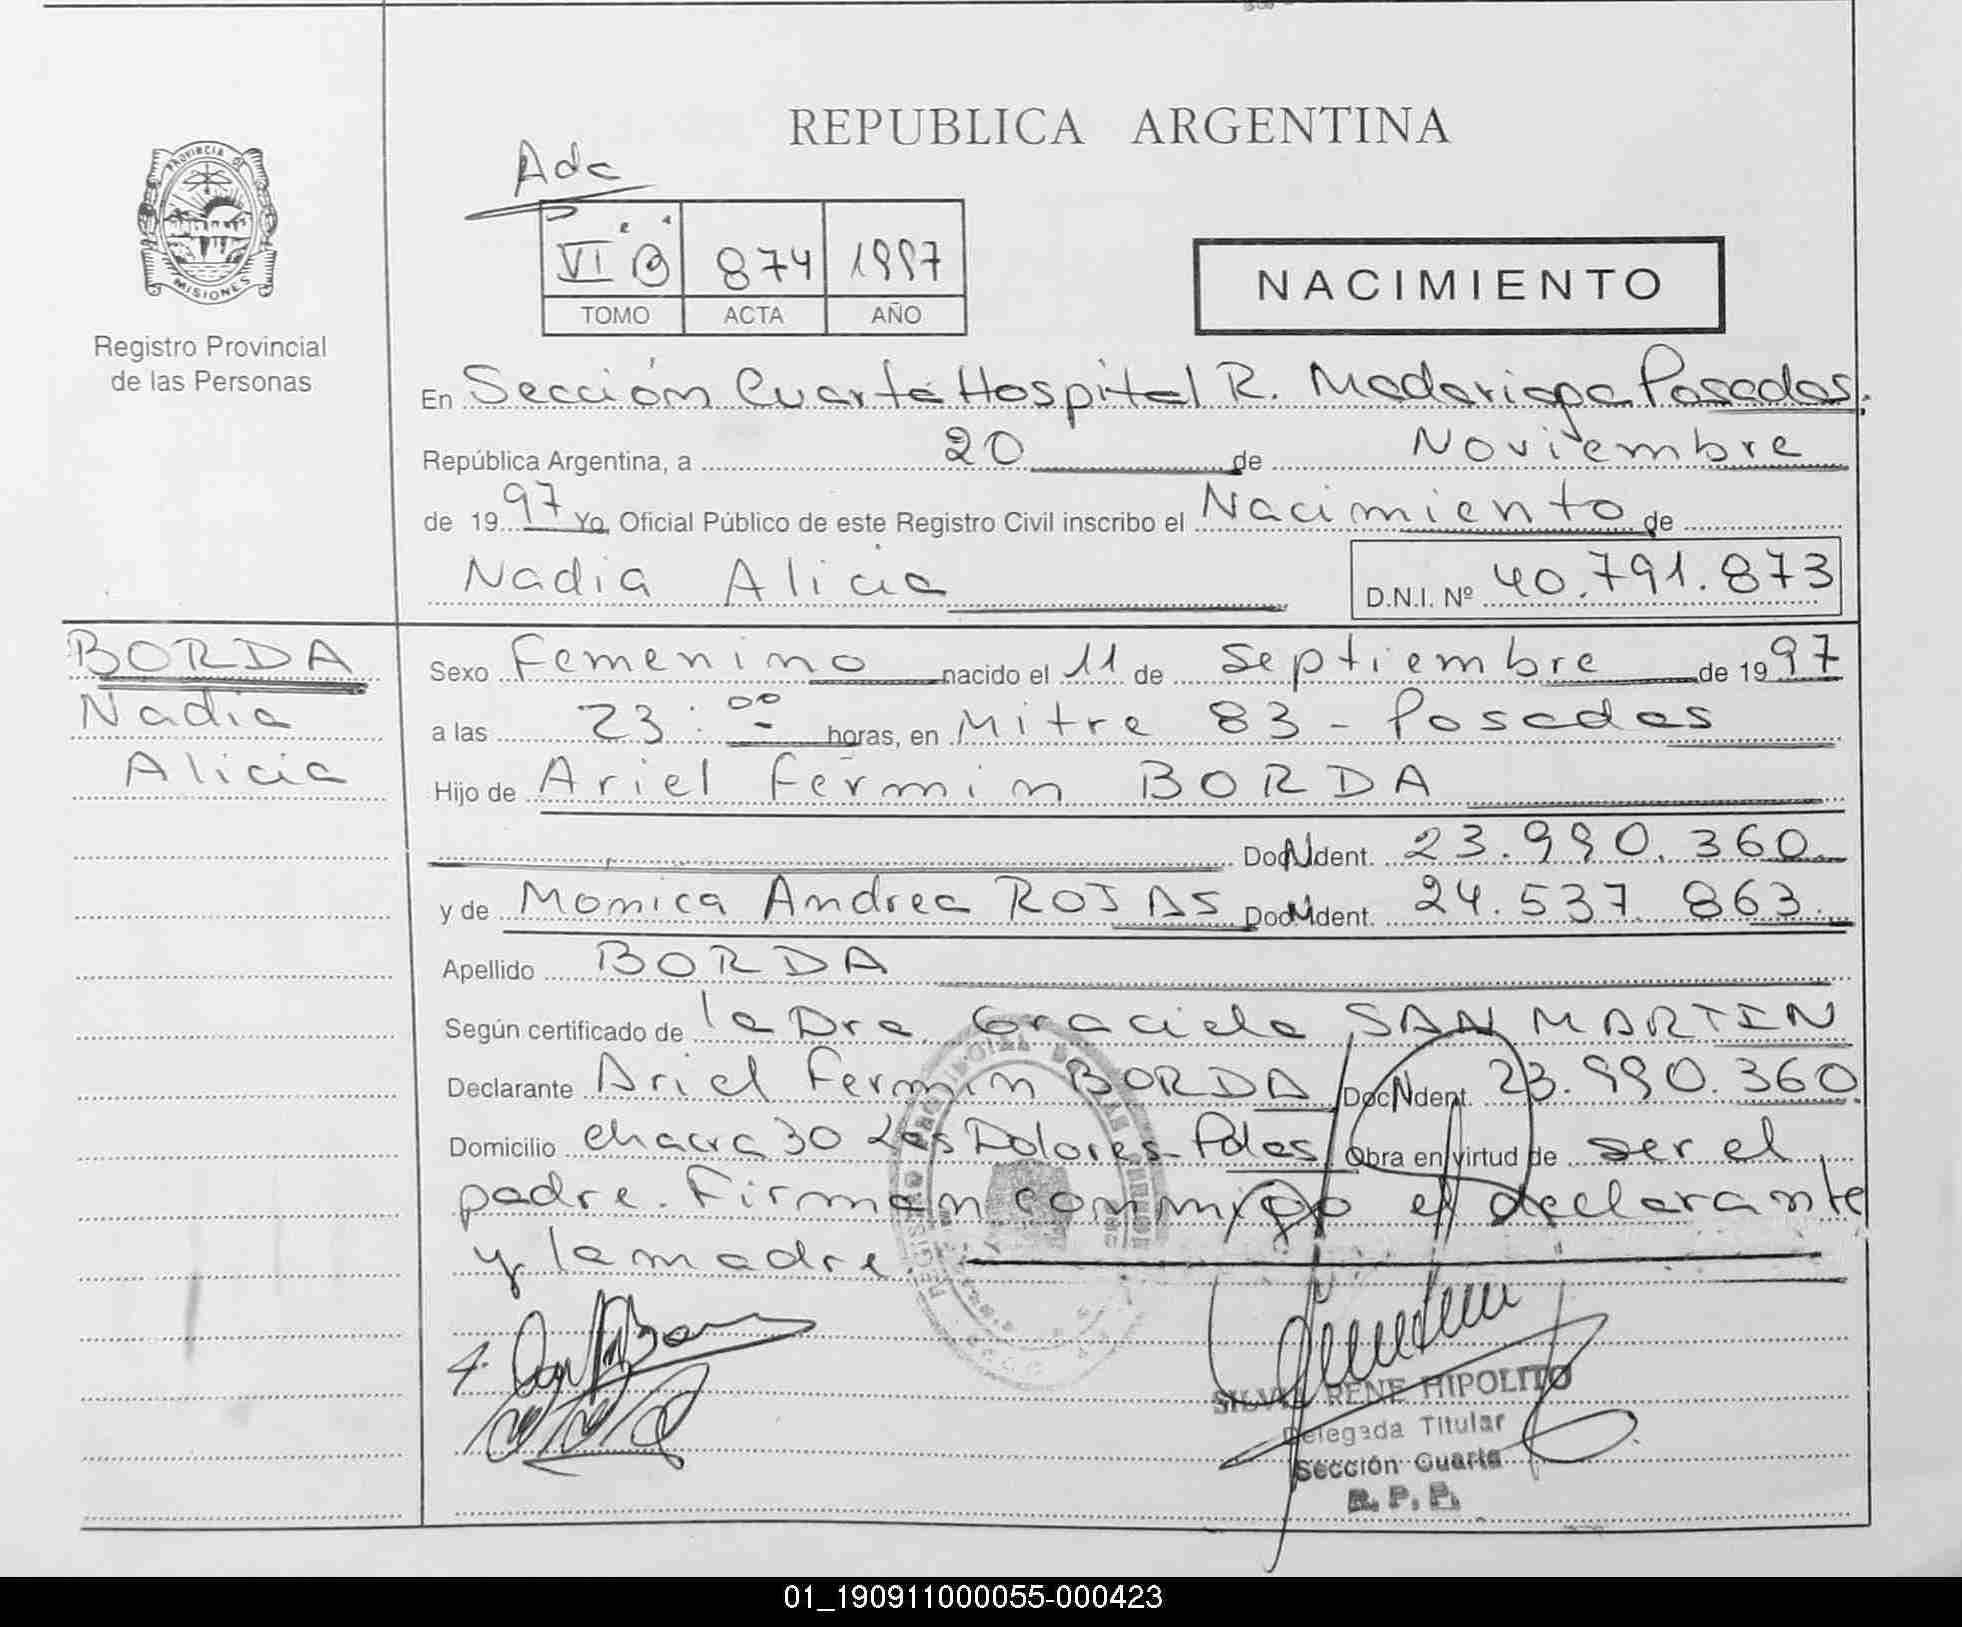 REPUBLICA ARGENTINA
PROVINCIA DE
MISIONES
Registro Provincial
de las Personas
Adc
VI B 874 1997
TOMO ACTA AÑO
NACIMIENTO
En Sección Cuarta Hospital R. Madariaga Posadas.
República Argentina, a 20 de Noviembre
de 1997 Yo, Oficial Público de este Registro Civil inscribo el Nacimiento de
Nadia Alicia D.N.I. Nº 40.791.873
BORDA
Nadia
Alicia
Sexo Femenino nacido el 11 de Septiembre de 1997
a las 23:00 horas, en Mitre 83 - Posadas
Hijo de Ariel Fermin BORDA
DocNIdent. 23.990.360.
y de Monica Andrea ROJAS DocNIdent. 24.537.863.
Apellido BORDA
Según certificado de la Dra Graciela SAN MARTIN
Declarante Ariel Fermin BORDA DocNIdent. 23.990.360.
Domicilio chacra 30 Los Dolores - Pdas Obra en virtud de ser el
padre. Firman conmigo el declarante
y la madre
SILVIA RENE HIPOLITO
Delegada Titular
Sección Cuarta
R. P. P.
01_190911000055-000423